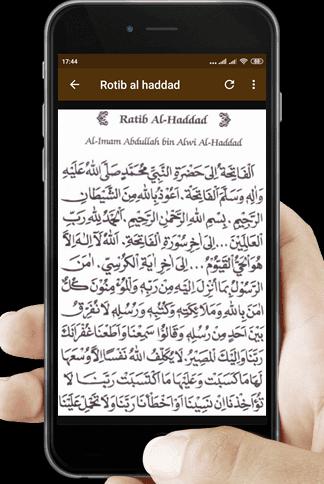 17:44
Rotib al haddad
Ratib Al-Haddad
Al-Imam Abdullah bin Alwi Al-Haddad
اَلْفَاتِحَةُ إِلَى حَضْرَةِ النَّبِيِّ مُحَمَّدٍ صَلَّى اللهُ عَلَيْهِ
وَاٰلِهِ وَسَلَّمَ اَلْفَاتِحَةَ. اَعُوْذُ بِاللهِ مِنَ الشَّيْطَانِ
الرَّجِيْمِ. بِسْمِ اللهِ الرَّحْمٰنِ الرَّحِيْمِ. اَلْحَمْدُ لِلهِ رَبِّ
الْعٰلَمِيْنَ ...إِلَى آخِرِ سُوْرَةِ الْفَاتِحَةِ. اَللهُ لَآ اِلٰهَ اِلَّا
هُوَ الْحَيُّ الْقَيُّوْمُ ... إِلَى آخِرِ اٰيَةِ الْكُرْسِيِّ. اٰمَنَ
الرَّسُوْلُ بِمَآ اُنْزِلَ اِلَيْهِ مِنْ رَبِّهِ وَالْمُؤْمِنُوْنَ كُلٌّ
اٰمَنَ بِاللهِ وَمَلٰئِكَتِهِ وَكُتُبِهِ وَرُسُلِهِ لَا نُفَرِّقُ
بَيْنَ اَحَدٍ مِنْ رُسُلِهِ وَقَالُوْا سَمِعْنَا وَاَطَعْنَا غُفْرَانَكَ
رَبَّنَا وَاِلَيْكَ الْمَصِيْرُ. لَا يُكَلِّفُ اللهُ نَفْسًا اِلَّا وُسْعَهَا
لَهَا مَا كَسَبَتْ وَعَلَيْهَا مَا اكْتَسَبَتْ رَبَّنَا لَا
تُؤَاخِذْنَا اِنْ نَسِيْنَا اَوْ اَخْطَأْنَا رَبَّنَا وَلَا تَحْمِلْ عَلَيْنَا